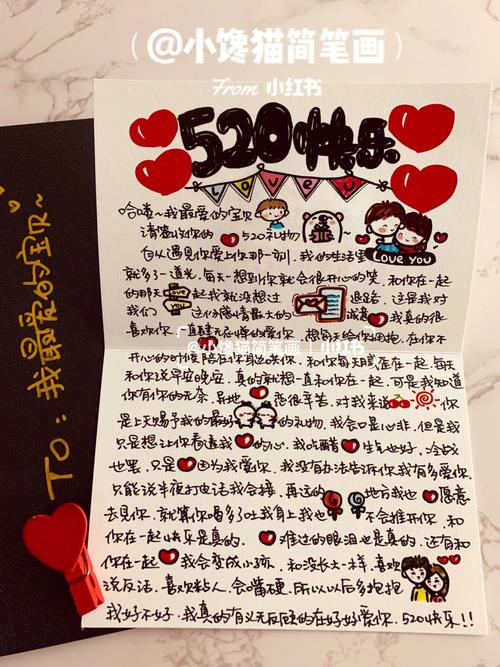 (@小馋猫简笔画)
From 小红书
520快乐
LOVE U
哈喽~我最爱的宝贝
请签收你的520礼物~
LOVE YOU
自从遇见你爱上你那一刻,我的生活里
就多了一道光,每天一想到你就会很开心的笑,和你在一起
的那天起我就没想过退路,这是我对
LOVE YOU
我们这份感情最大的诚意,我真的很
喜欢你,一直肆无忌惮的爱你,想每天给你拥抱,在你不
@小馋猫简笔画 | 小红书
开心的时候陪在你身边哄你,和你每天腻歪在一起,每天
和你说早安晚安,真的就想一直和你在一起,可是我知道
你有你的无奈,异地恋很辛苦,对我来说你
是上天赐予我的最好的礼物,我会口是心非,但是我
只是想让你看透我的心,我吃醋生气也好,冷战
也罢,只是因为我爱你,我没有办法告诉你我有多爱你,
只能说半夜打电话我会接,再远的地方我也愿意
去见你,就算你喝多了吐我身上我也不会推开你,和
你在一起快乐是真的,难过的眼泪也是真的,还有和
你在一起我会变成小孩,和没长大一样,喜欢
说反话,喜欢粘人,会嘴硬,所以以后多抱抱
我好不好,我真的有义无反顾的在好好爱你,520快乐!!
TO:我最爱的宝贝~